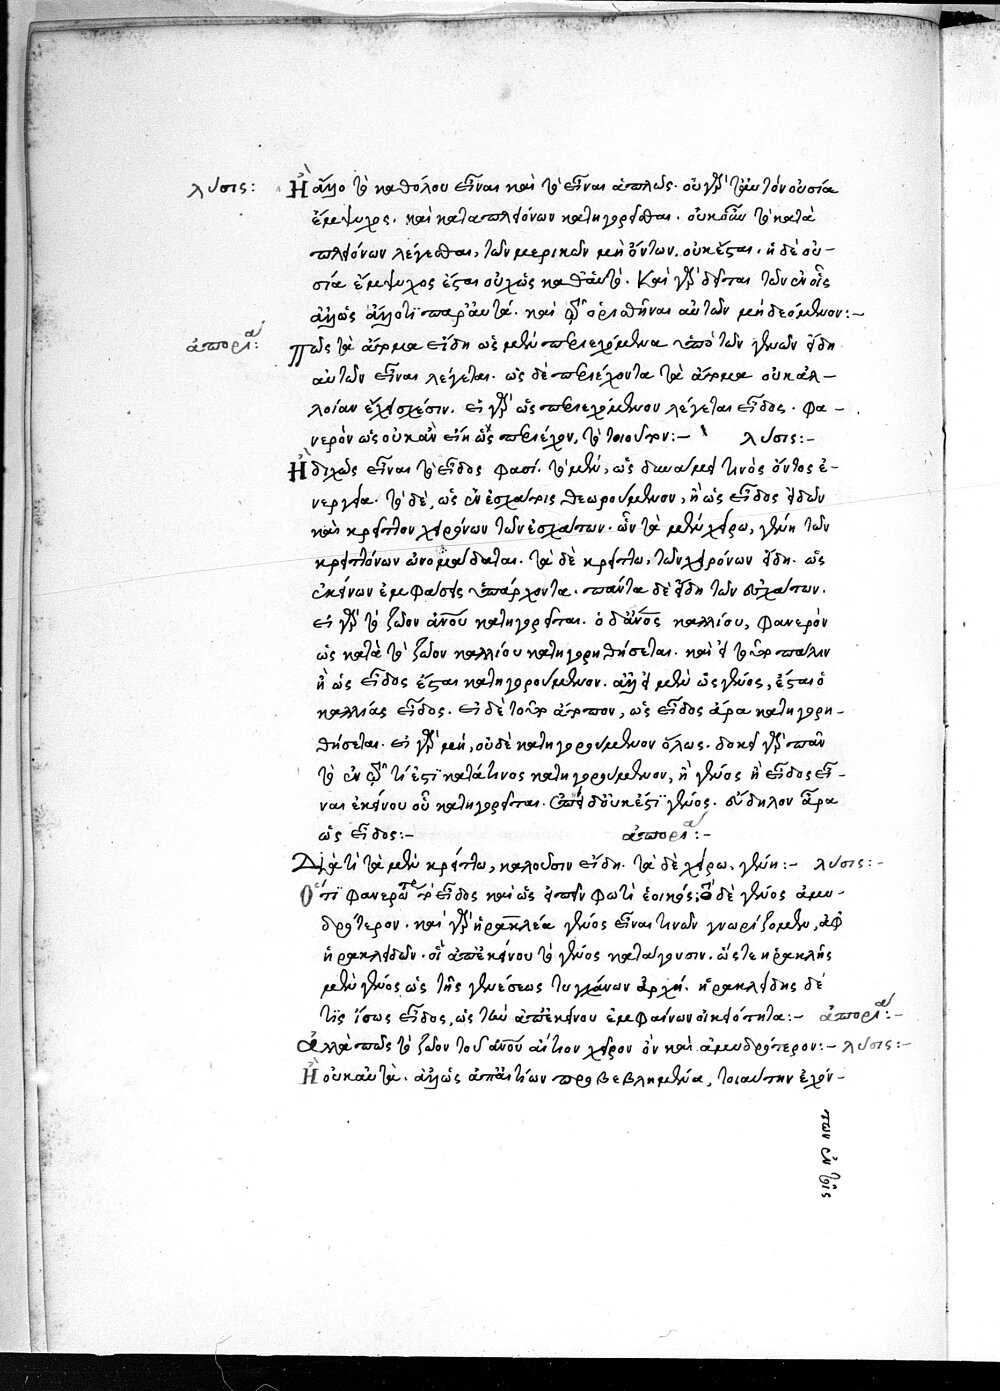 λύσις:
Ἢ ἄλλο τὸ καθόλου εἶναι καὶ τὸ εἶναι ἁπλῶς. οὐ γὰρ ταὐτὸν οὐσία
ἔμψυχος. καὶ κατὰ πλειόνων κατηγορεῖσθαι. οὐκοῦν τὸ κατὰ
πλειόνων λέγεσθαι, τῶν μερικῶν μὴ ὄντων, οὐκ ἔσται. ἡ δὲ οὐ-
σία ἔμψυχος ἔσται οὐχ ὡς καθ' αὑτό. καὶ γὰρ δεῖται τῶν ἐν οἷς
ἄλλως ἄλλό τι παρ' αὐτά. καὶ ὁρισθῆναι αὐτῶν μὴ δεόμενον:-
ἀπορία:
Πῶς τὰ ἄτομα εἴδη ὡς μὲν περιεχόμενα ὑπὸ τῶν γενῶν εἴδη
αὐτῶν εἶναι λέγεται. ὡς δὲ περιέχοντα τὰ ἄτομα οὐκ ἀλ-
λοίαν ἔχει σχέσιν. εἰ γὰρ ὡς περιεχόμενον λέγεται εἶδος. φα-
νερὸν ὡς οὐκ ἂν εἴη ὡς περιέχον, τὸ τοιοῦτον:- λύσις:-
Ἢ διχῶς εἶναι τὸ εἶδος φασί. τὸ μὲν, ὡς δυνάμει τινὸς ὄντος ἐ-
νέργεια. τὸ δὲ, ὡς ἐν ἐσχάτοις θεωρούμενον, ἢ ὡς εἶδος εἰδῶν
καὶ κρεῖττον χειρόνων τῶν ἐσχάτων. ὧν τὰ μὲν χείρω, γένη τῶν
κρειττόνων ὠνομάσθαι. τὰ δὲ κρείττω, τῶν χειρόνων εἴδη. ὡς
ἐκείνων ἐμφάσεις ὑπάρχοντα. πάντα δὲ εἴδη τῶν ἐσχάτων.
εἰ γὰρ τὸ ζῶον ἀνου κατηγορεῖται. ὁ δ' ἄνος καλλίου, φανερὸν
ὡς κατὰ τὸ ζῶον καλλίου κατηγορηθήσεται. καὶ εἰ τοῦτο πάλιν
ἢ ὡς εἶδος ἔσται κατηγορούμενον. ἀλλ' εἰ μὲν ὡς γένος, ἔσται ὁ
καλλίας εἶδος. εἰ δὲ τοῦτο ἄτοπον, ὡς εἶδος ἄρα κατηγορη-
θήσεται. εἰ γὰρ μή, οὐδὲ κατηγορούμενον ὅλως. δοκεῖ γὰρ πᾶν
τὸ ἐν τῷ τί ἐστι κατά τινος κατηγορούμενον, ἢ γένος ἢ εἶδος εἶ-
ναι ἐκείνου οὗ κατηγορεῖται. ἐπεὶ δ' οὐκ ἔστι γένος. εὔδηλον ἄρα
ὡς εἶδος:- ἀπορία:-
Διὰ τί τὰ μὲν κρείττω, καλοῦσιν εἴδη. τὰ δὲ χείρω, γένη:- λύσις:-
Ὅτι φανερώτερον τὸ εἶδος καὶ ὡς εἰπεῖν φωτὶ ἐοικός; τὸ δὲ γένος ἀμυ-
δρότερον. καὶ γὰρ ἡρακλέα γένος εἶναι τινῶν γνωρίζομεν, ἀφ'
ἡρακλειδῶν. οἳ ἀπ' ἐκείνου τὸ γένος κατάγουσιν. ὥστε ἡρακλῆς
μὲν γένος ὡς τῆς γενέσεως τυγχάνων ἀρχή. ἡρακλείδης δέ
τις ἴσως εἶδος, ὡς τὴν ἀπ' ἐκείνου ἐμφαίνων οἰκειότητα:- ἀπορία:-
Ἀλλὰ πῶς τὸ ζῶον τοῦ ἀνου αἴτιον χεῖρον ὂν καὶ ἀμυδρότερον:- λύσις:-
Ἢ οὐκ αὐτὰ. ἀλλ' ὡς ἀπ' αἰτίων προβεβλημένα, τοιαύτην ἐχόν-
των ἐν τοῖς